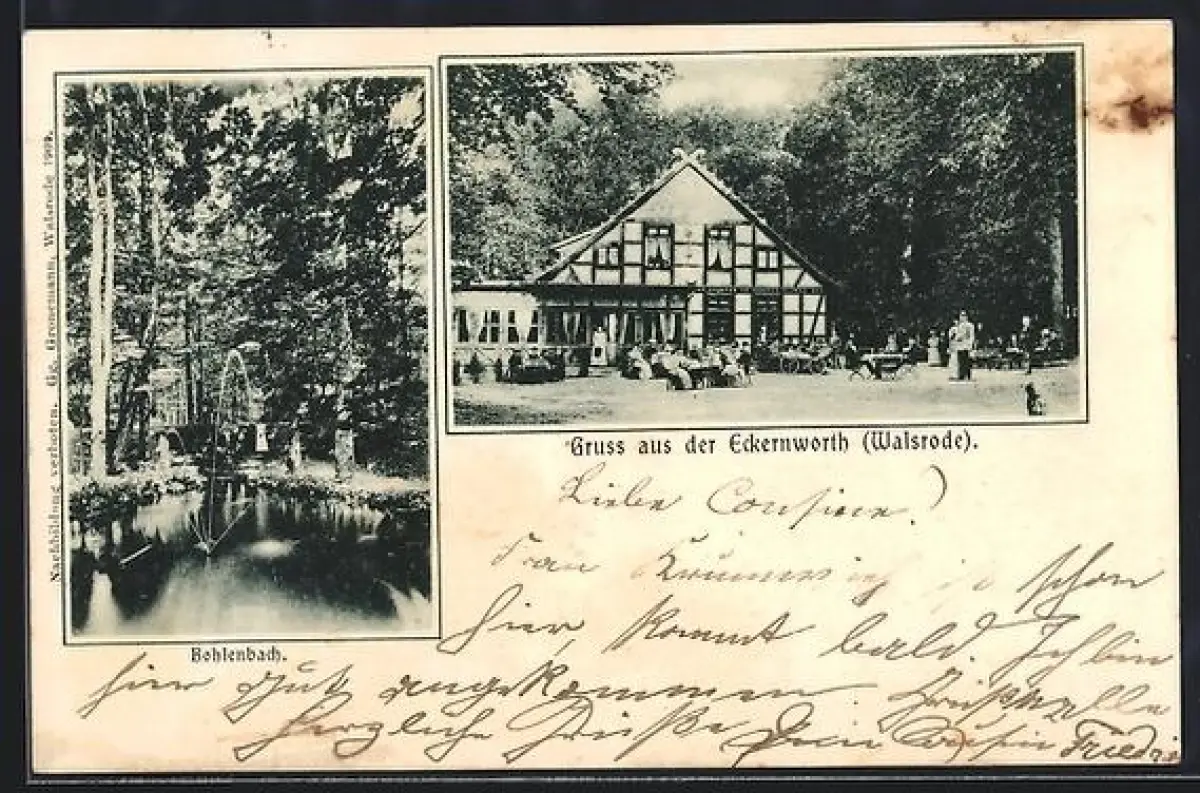 Nachbildung verboten. Ge. Gronemann, Walsrode 1902.
Bohlenbach.
Gruss aus der Eckernworth (Walsrode).
Liebe Cousine!
Frau
schon
hier, kommt bald. Ich bin
hier gut angekommen.
herzliche Grüße Dein Cousin